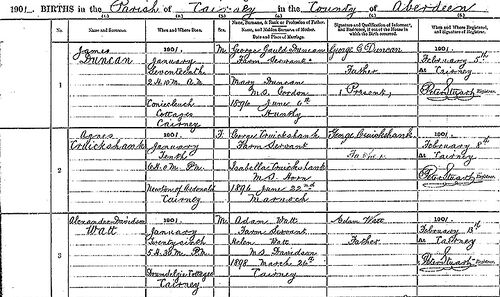 1901. BIRTHS in the Parish of Cairney in the County of Aberdeen
No. Name and Surname. When and Where Born. Sex. Name, Surname, & Rank or Profession of Father. Name, and Maiden Surname of Mother. Date and Place of Marriage. Signature and Qualification of Informant, and Residence, if out of the House in which the Birth occurred. When and Where Registered, and Signature of Registrar.
James Duncan
1
1901.
January
Seventeenth
2 H. 10 M. A.M.
Cottages
Cairney
M
George Gauld Duncan
Farm Servant
Mary Duncan
M.S. Gordon
1896 June 6th
Huntly
George G Duncan
Father
Present
1901.
February 5th
At Cairney
Peter Stuart
Registrar.
Agnes
Cruickshank
2
1901.
January
Tenth
6 H. 0 M. P.M.
Cairney
F
George Cruickshank
Farm Servant
Isabella Cruickshank
M.S. Horn
1896 June 22nd
Marnoch
George Cruickshank
Father
1901.
February 8th
At Cairney
Peter Stuart
Registrar.
Alexander Davidson
Watt
3
1901.
January
Twenty sixth
5 H. 30 M. P.M.
Cottages
Cairney
M
Adam Watt
Farm Servant
Helen Watt
M.S. Davidson
1898 March 26th
Cairney
Adam Watt
Father
1901.
February 13th
At Cairney
Peter Stuart
Registrar.